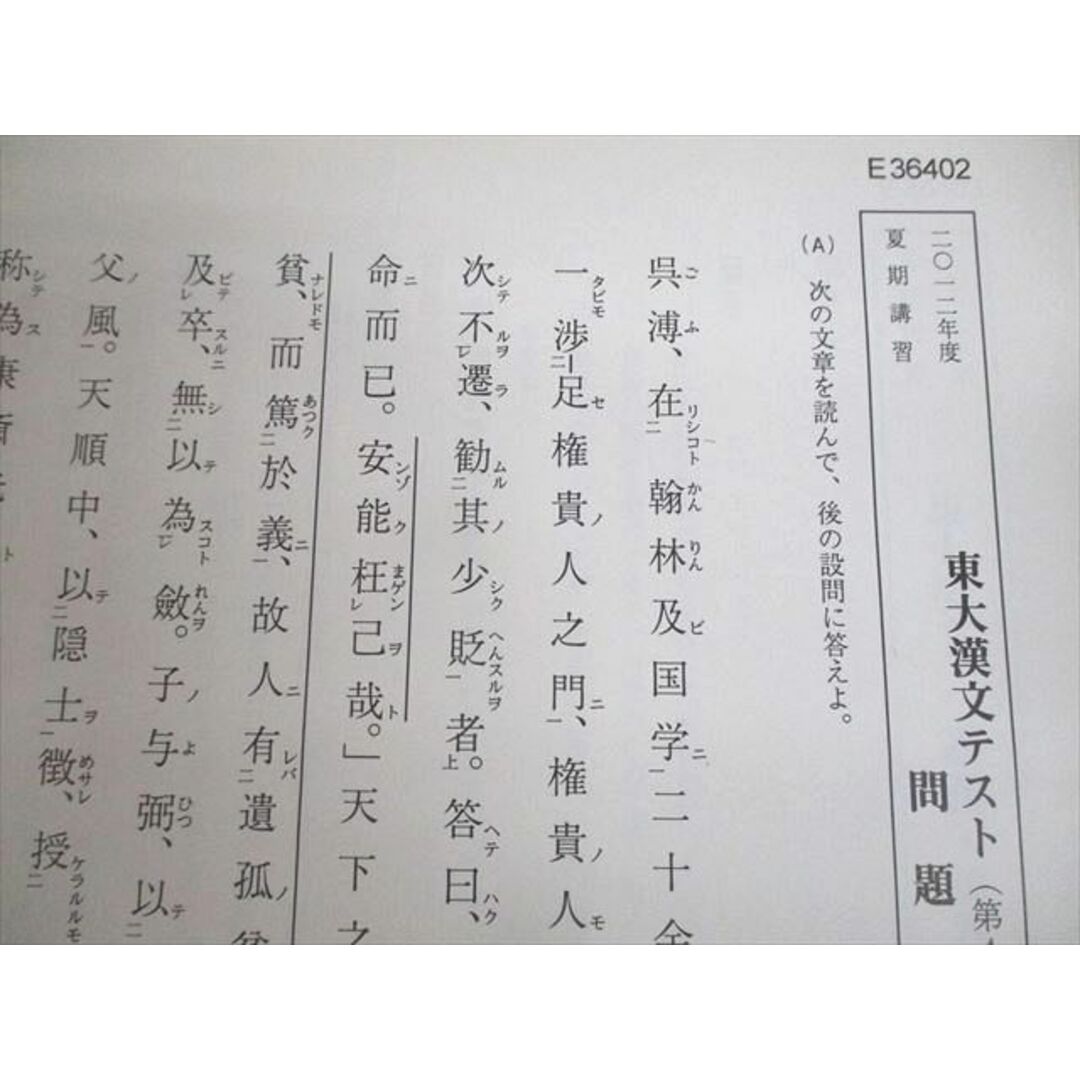 E36402
二〇一二年度
夏期講習
東大漢文テスト（第
問題
(A) 次の文章を読んで、後の設問に答えよ。
呉溥、在翰林及国学二十余
一渉足権貴人之門、権貴人
次不遷、勧其少貶者。答曰、
命而已。安能枉己哉。」天下之
貧、而篤於義、故人有遺孤
及卒、無以為斂。子与弼、以
父風。天順中、以隠士徴、授
称為康斎